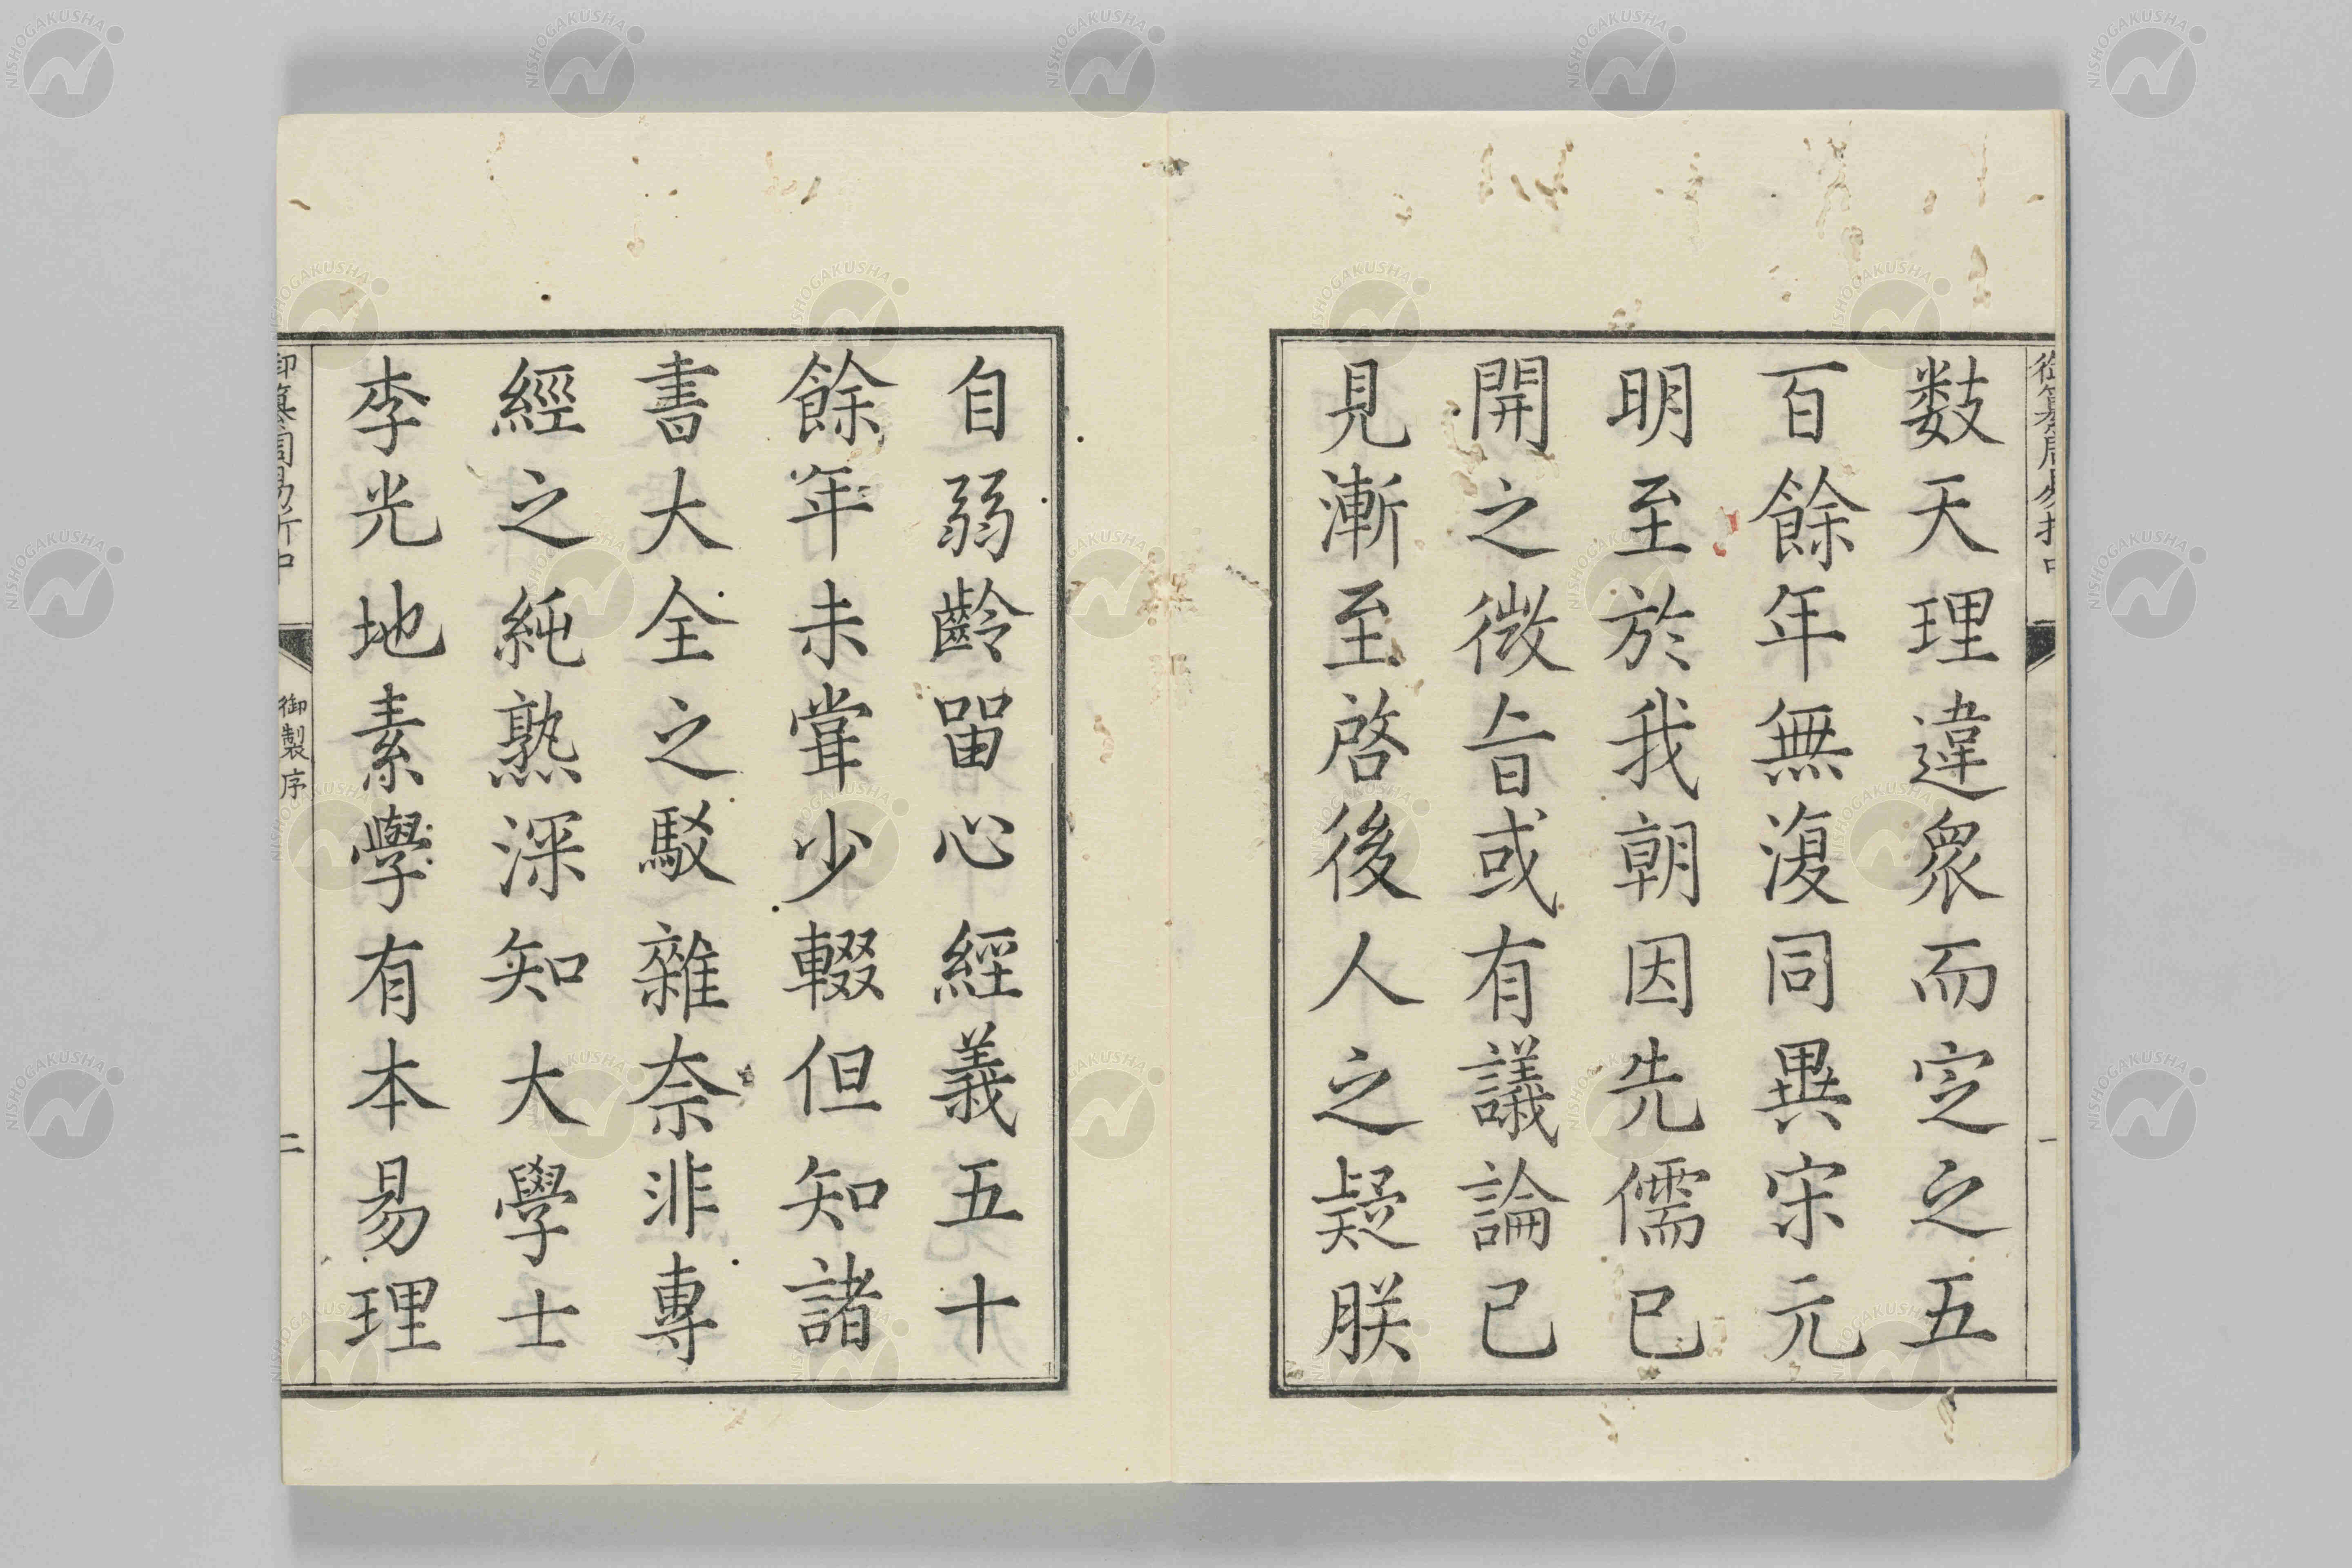 御纂周易折中
一
數天理違衆而定之五
百餘年無復同異宋元
明至於我朝因先儒已
開之微旨或有議論已
見漸至啓後人之疑朕
自弱齡留心經義五十
餘年未嘗少輟但知諸
書大全之駁雜奈非專
經之純熟深知大學士
李光地素學有本易理
御纂周易折中
御製序
二
NISHOGAKUSHA